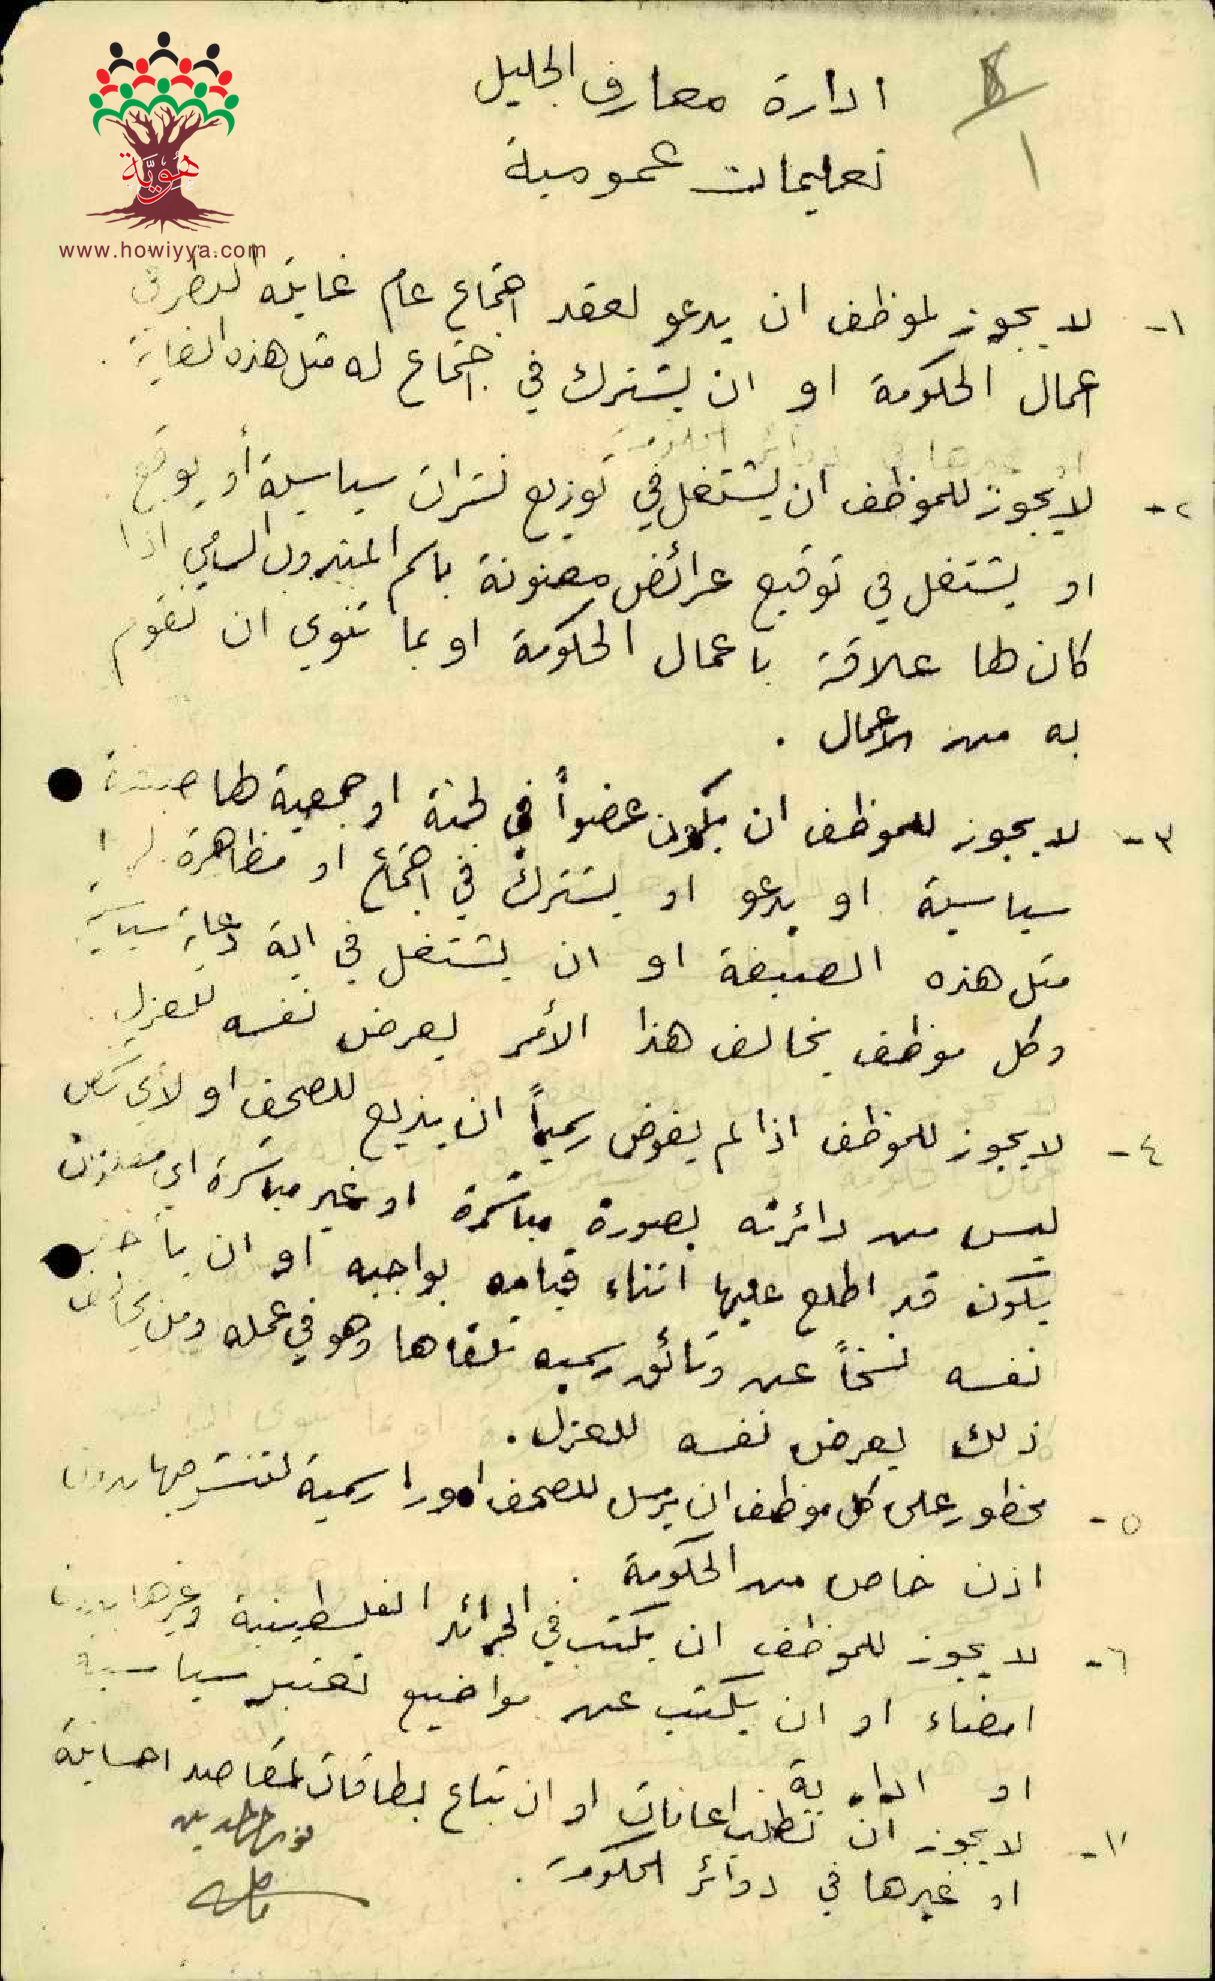 هُوِيَّة
www.howiyya.com
ادارة معارف الجليل
تعليمات عمومية
١
١- لا يجوز لموظف ان يدعو لعقد اجتماع عام غايته النظر في
اعمال الحكومة او ان يشترك في اجتماع له مثل هذه الغاية .
٢- لا يجوز للموظف ان يشتغل في توزيع نشرات سياسية أو يوقع
او يشتغل في توقيع عرائض معنونة باسم المندوب السامي اذا
كان لها علاقة باعمال الحكومة او بما تنوي ان تقوم
به من الاعمال .
٣- لا يجوز للموظف ان يكون عضواً في لجنة او جمعية لها صبغة
سياسية او يدعو او يشترك في اجتماع او مظاهرة لها
مثل هذه الصبغة او ان يشتغل في اية دعاية سياسية
وكل موظف يخالف هذا الأمر يعرض نفسه للعزل .
٤- لا يجوز للموظف اذا لم يفوض رسمياً ان يذيع للصحف او لأي شخص
ليس من دائرته بصورة مباشرة او غير مباشرة اي معلومات
يكون قد اطلع عليها اثناء قيامه بواجبه او ان يأخذ
نفسه نسخاً عن وثائق رسميه تلقاها وهو في عمله ومن يخالف
ذلك يعرض نفسه للعزل .
٥- محظور على كل موظف ان يرسل للصحف امورا رسمية لتنشرها بدون
اذن خاص من الحكومة .
٦- لا يجوز للموظف ان يكتب في الجرائد الفلسطينية وغيرها بدون
امضاء او ان يكتب عن مواضيع تعتبر سياسية
او ادارية
لا يجوز ان تطلب اعانات او ان تباع بطاقات لمقاصد احسانية
او غيرها في دوائر الحكومة .